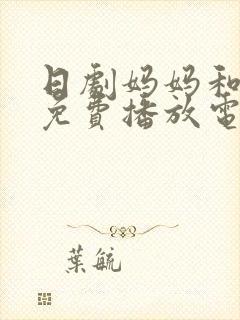 日劇妈妈和
免費播放電
葉毓